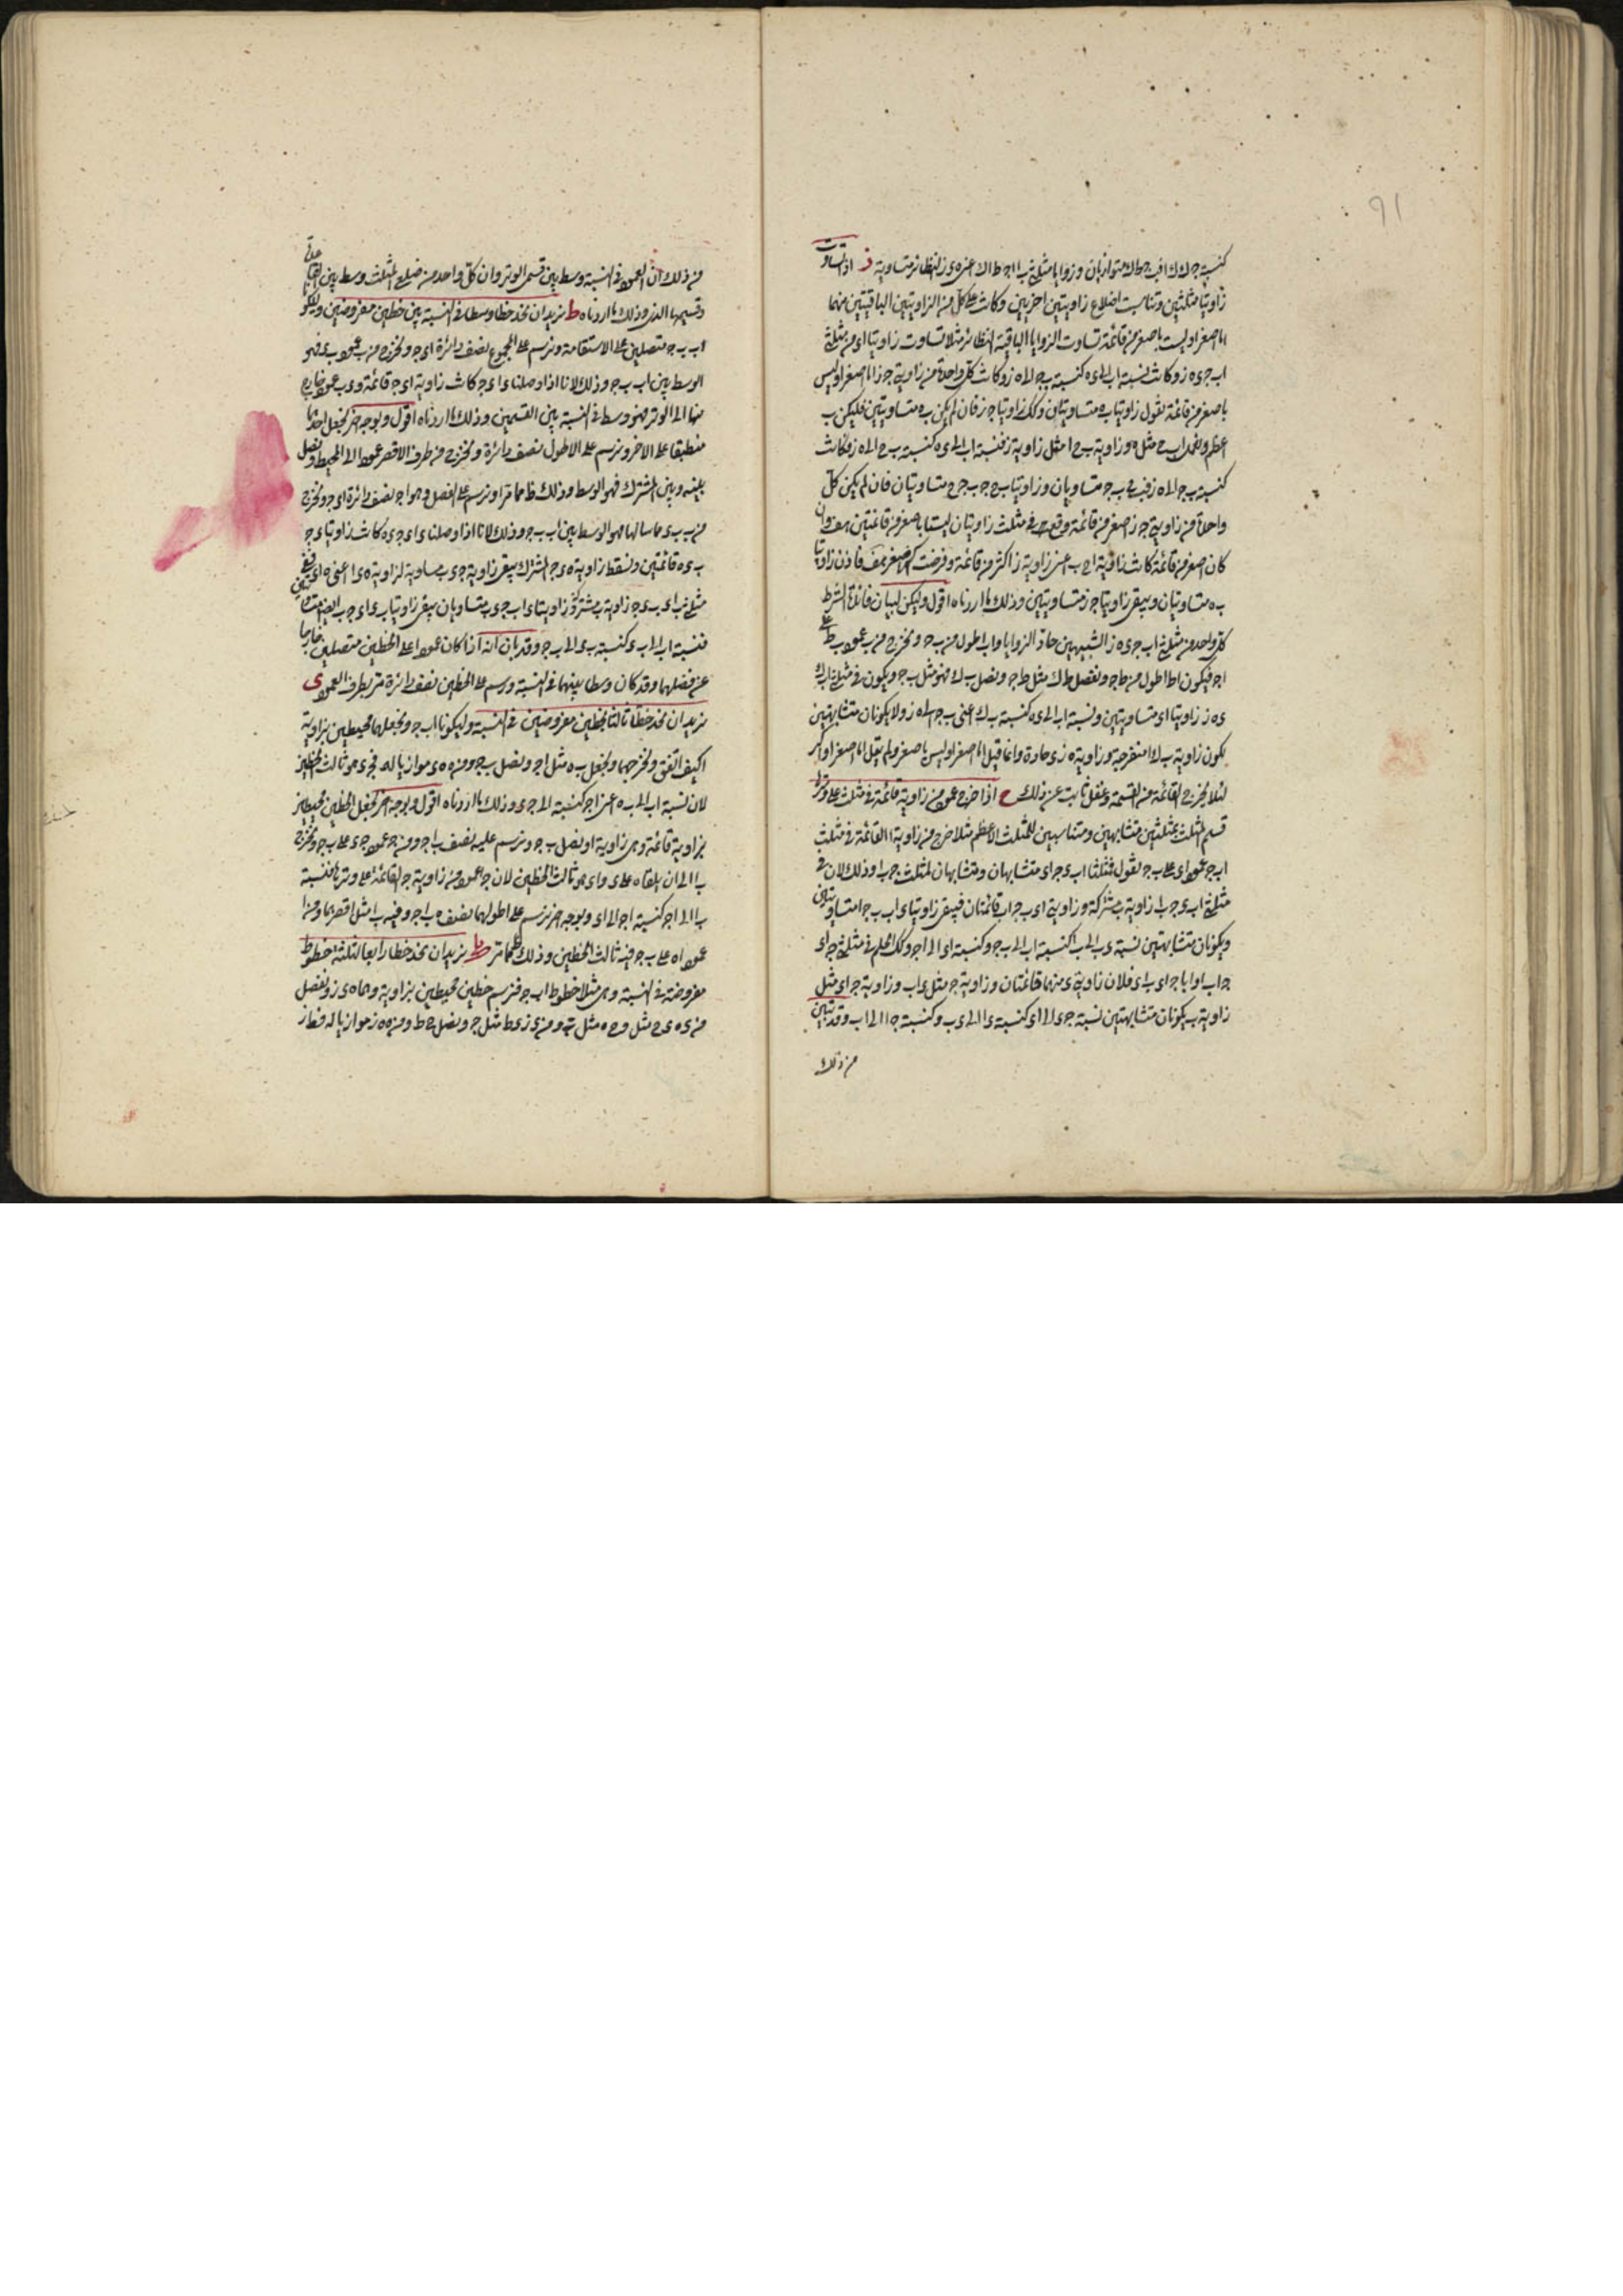 91
كنسبة جـ ك ك ا فب جـ ط ك متوازيان وزوايا مثلثى ب ا جـ ط ك ا عنى ه ى ز النظائر متساوية ز اذا تساوت
زاويتا مثلثين وتناسبت اضلاع زاويتين اخريين وكانت كل من الزاويتين الباقيتين منهما
اما اصغر او ليست باصغر من قائمة تساوت الزوايا الباقية النظائر مثلا تساوت زاويتا ا ى من مثلثى
ا ب جـ ى ه ز وكانت نسبة ا ب الى ى ه كنسبة ب جـ الى ه ز وكانت كل واحدة من زاويتى جـ ز اما اصغر او ليس
باصغر من قائمة نقول زاويتا ب ه متساويتان وكذلك زاويتا جـ ز فان لم يكن ب ه متساويتين فليكن ب
اعظم ونعمل ا ب ح مثل ه وزاوية ب ح ا مثل زاوية ز فنسبة ا ب الى ى ه كنسبة ب ح الى ه ز وكانت
كنسبة ب جـ الى ه ز فب ح ب جـ متساويان وزاويتا ب ح جـ ب جـ ح متساويتان فان لم يكن كل
واحدة من زاويتى جـ ز اصغر من قائمة وقع فى مثلث زاويتان ليستا باصغر من قائمتين هف وان
كان اصغر من قائمة كانت زاوية ا ح ب اعنى زاوية ز اكثر من قائمة وفرضت اصغر هف فاذن زاويتا
ب ه متساويتان ويبقى زاويتا جـ ز متساويتين وذلك ما اردناه اقول وليكن لبيان فائدة الشرط
كل واحد من مثلثى ا ب جـ ى ه ز الشبيهين حاد الزوايا و ا ب اطول من ب جـ ونخرج من ب عمود ب ط على
ا جـ فيكون ا ط اطول من ط جـ ونفصل ط ك مثل ط جـ ونصل ب ك فهو مثل ب جـ ويكون فى مثلثى ا ب ك
ى ه ز زاويتا ا ى متساويتين ونسبة ا ب الى ى ه كنسبة ب ك اعنى ب جـ الى ه ز ولا يكونان متشابهتين
لكون زاوية ب ك ا منفرجة وزاوية ه ز ى حادة وانما قيل اما اصغر او ليس باصغر ولم يقل اما اصغر او اكبر
لئلا يخرج القائمة من القسمة وغفل ثابت عن ذلك ح اذا خرج عمود من زاوية قائمة فى مثلث على وترها
قسم المثلث بمثلثين متشابهين ومتناسبين للمثلث الاعظم مثلا خرج من زاوية ا القائمة فى مثلث
ا ب جـ عمود ا ى على ب جـ نقول فمثلثا ا ب ى جـ ا ى متشابهان ومتشابهان لمثلث جـ ب ا وذلك لان فى
مثلثى ا ب ى جـ ب ا زاوية ب مشتركة وزاويتى ا ى ب جـ ا ب قائمتان فيبقى زاويتا ى ا ب ب جـ ا متساويتين
ويكونان متشابهتين نسبة ى ب الى ب ا كنسبة ا ب الى ب جـ وكنسبة ا ى الى ا جـ وكذلك الحكم فى مثلثى جـ ا ى
جـ ا ب واما جـ ا ى ب ا ى فلان زاويتى ى منهما قائمتان وزاوية جـ مثل ى ا ب وزاوية جـ ا ى مثل
زاوية ب يكونان متشابهتين نسبة جـ ى الى ا ى كنسبة ى ا الى ى ب وكنسبة جـ ا الى ا ب وقد تبين
من ذلك
من ذلك ان العمود فى النسبة وسط بين قسمى الوتر وان كل واحد من ضلعى المثلث وسط بين القاعدة
وقسيمها الذى وذلك ما اردناه ط نريد ان نجد خطا وسطا فى النسبة بين خطين مفروضين وليكونا
ا ب ب جـ متصلين على الاستقامة ونرسم على المجموع نصف دائرة ا ى جـ ونخرج من ب عمود ب ى فهو
الوسط بين ا ب ب جـ وذلك لانا اذا وصلنا ى ا ى جـ كانت زاوية ا ى جـ قائمة و ى ب عمود خارج
منها الى الوتر فهو وسط فى النسبة بين القسمين وذلك ما اردناه اقول وبوجه اخر نجعل احدهما
منطبقا على الاخر ونرسم على الاطول نصف دائرة ونخرج من طرف الاقصر عمودا الى المحيط ونصل
بينه وبين المشترك فهو الوسط وذلك ظ مما مر او نرسم على الفصل وهو ا جـ نصف دائرة ا ى جـ ونخرج
من ب ب ى مماسا لها فهو الوسط بين ا ب ب جـ وذلك لانا اذا وصلنا ى ا ى جـ ى ه كانت زاويتا ا ى جـ
ب ى ه قائمتين ونسقط زاوية ه ى جـ المشترك يبقى زاوية جـ ى ب مساوية لزاوية ه ى ا اعنى ه ا ى ففى
مثلثى ب ا ى ب ى جـ زاوية ب مشتركة وزاويتا ى ا ب جـ ى ب متساويان يبقى زاويتا ب ى ا ى جـ ب ايضا متساويتين
فنسبة ا ب الى ب ى كنسبة ب ى الى ب جـ وقد بان انه اذا كان عمودا على الخطين متصلين خارجا
عن فصلهما وقد كان وسطا بينهما فى النسبة ورسم على الخطين نصف دائرة مر بطرف العمود ى
نريد ان نجد خطا ثالثا لخطين مفروضين فى النسبة وليكونا ا ب ا جـ ونجعلهما محيطين بزاوية
ا كيف اتفق ونخرجهما ونجعل ب ه مثل ا جـ ونصل ب جـ ومن ه ه ى موازيا له فجـ ى هو ثالث الخطين
لان نسبة ا ب الى ب ه اعنى ا جـ كنسبة ا جـ الى جـ ى وذلك ما اردناه اقول وبوجه اخر نجعل الخطين محيطين
بزاوية قائمة وهى زاوية ا ونصل ب جـ ونرسم عليه نصف ب ا جـ ومن جـ عمود جـ ى على ب جـ ونخرج
ب ا الى ان يلقاه على ى و ا ى هو ثالث الخطين لان جـ ا عمود من زاوية جـ القائمة على وترها فنسبة
ب ا الى ا جـ كنسبة ا جـ الى ا ى وبوجه اخر نرسم على اطولهما نصف ب ا جـ وفيه ب ا مثل اقصرهما ومن ا
عمود ا ه على ب جـ فيه ثالث الخطين وذلك ظ مما مر يا نريد ان نجد خطا رابعا لثلثة خطوط
مفروضة فى النسبة وهى مثلا خطوط ا ب جـ فنرسم خطين محيطين بزاوية وهما ه ى ز ونفصل
من ى ه ى ح مثل ا و ح ه مثل ب ومن ى ز ى ط مثل جـ ونصل ح ط ومن ه ه ز موازيا له فط ز